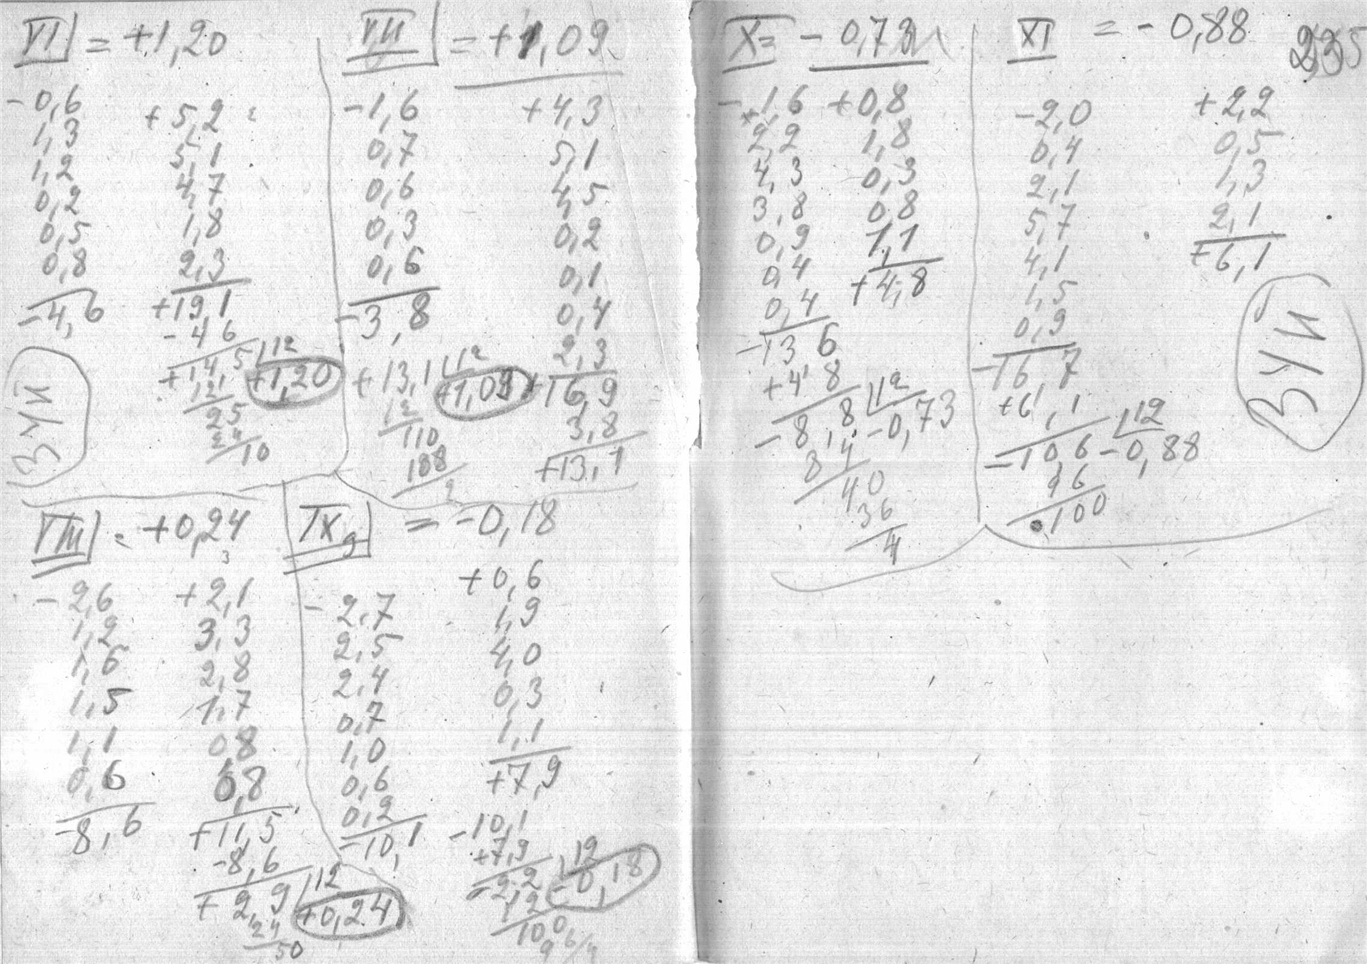 VI = +1,20
-0,6 +5,2
1,3 5,1
1,2 4,7
0,2 1,8
0,5 2,3
0,8 +19,1
-4,6 -4,6
+14,5 12
12 +1,20
25
24
10
ЗУИ
VII = +1,09
-1,6 +4,3
0,7 5,1
0,6 4,5
0,3 0,2
0,6 0,1
-3,8 0,4
2,3
+16,9
3,8
+13,1
+13,1 12
12 +1,09
110
108
2
VIII = +0,24
-2,6 +2,1
1,2 3,3
1,6 2,8
1,5 1,7
1,1 0,8
0,6 0,8
-8,6 +11,5
-8,6
+2,9 12
24 +0,24
50
IX = -0,18
-2,7 +0,6
2,5 1,9
2,4 4,0
0,7 0,3
1,0 1,1
0,6 +7,9
0,2
-10,1
-10,1
+7,9
-2,2 12
12 -0,18
100
96/4
X= -0,73
-1,6 +0,8
2,2 1,8
4,3 0,3
3,8 0,8
0,9 1,1
0,4 +4,8
0,4
-13 6
+4 8
-8,8 12
8 4 -0,73
40
36
4
XI = -0,88
-2,0 +2,2
0,4 0,5
2,1 1,3
5,7 2,1
4,1 +6,1
1,5
0,9
-16,7
+6,1
-10 6 12
96 -0,88
100
ЗУИ
235